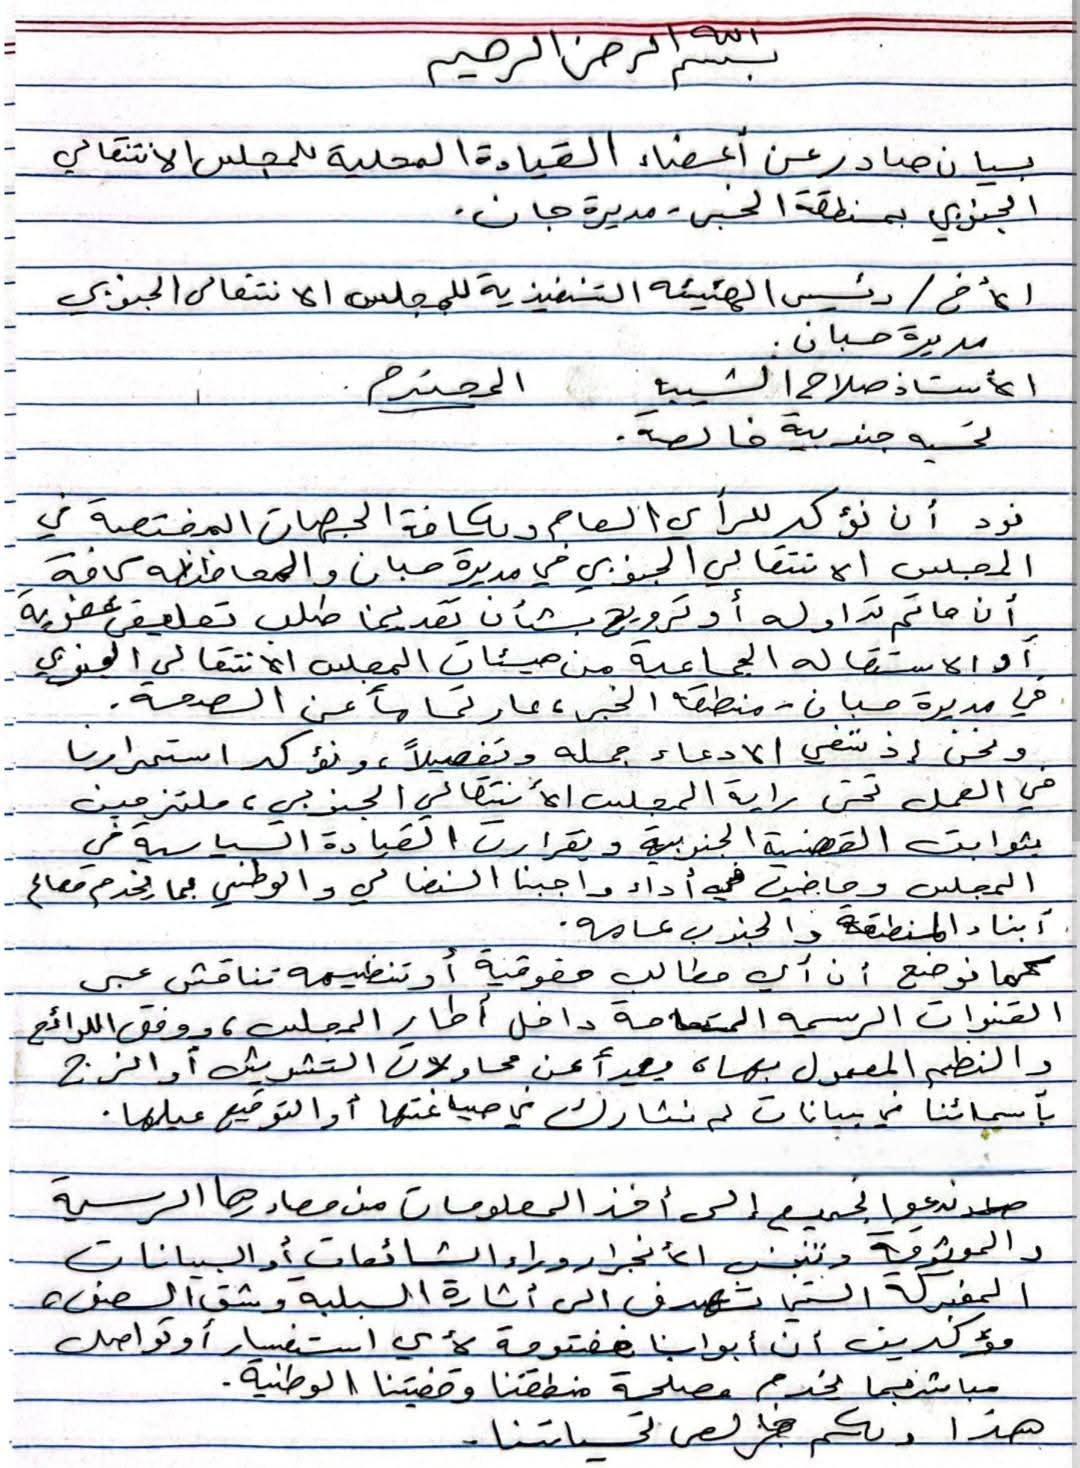 بسم الله الرحمن الرحيم
بيان صادر عن أعضاء القيادة المحلية للمجلس الانتقالي
الجنوبي بمنطقة الخبر - مديرة حبان.
الأخ / رئيس الهيئه التنفيذية للمجلس الانتقالي الجنوبي
مديرة حبان.
الأستاذ صلاح الشيبه المحترم.
تحيه جنوبية خالصة.
نود أن نؤكد للرأي العام ولكافة الجهات المختصة في
المجلس الانتقالي الجنوبي في مديرة حبان والمحافظه كافة
أن ماتم تداوله أو ترويج بشأن تقديمنا طلب تعليق عضوية
أو الاستقاله الجماعية من هيئات المجلس الانتقالي الجنوبي
في مديرة حبان - منطقه الخبر، عار تماماً عن الصحة.
ونحن إذ ننفي الادعاء جمله وتفصيلاً، ونؤكد استمرارنا
في العمل تحت راية المجلس الأنتقالي الجنوبي، ملتزمين
بثوابت القضية الجنوبية وبقرارت القيادة السياسية في
المجلس وماضين في أداء واجبنا النضالي والوطني بما يخدم مصالح
أبناء المنطقة والجنوب عامه.
كما نوضح أن أي مطالب حقوقية أو تنظيميه تناقش عبر
القنوات الرسميه المتاحة داخل أطار المجلس، ووفق اللوائح
والنظم المعمول بها، بعيداً عن محاولات التشويش أو الزج
بأسمائنا في بيانات لم نشارك في صياغتها أو التوقيع عليها.
ندعوا الجميع إلى أخذ المعلومات من مصادرها الرسمية
والموثوقة وتجنب الأنجرار وراء الشائعات أو البيانات
المفبركة التي تهدف الى أثارة البلبلة وشق الصف،
مؤكدين أن أبوابنا مفتوحة لأي استفسار أو تواصل
مباشر فيما يخدم مصلحة منطقتنا وقضيتنا الوطنية.
هذا ولكم خالص تحياتنا.